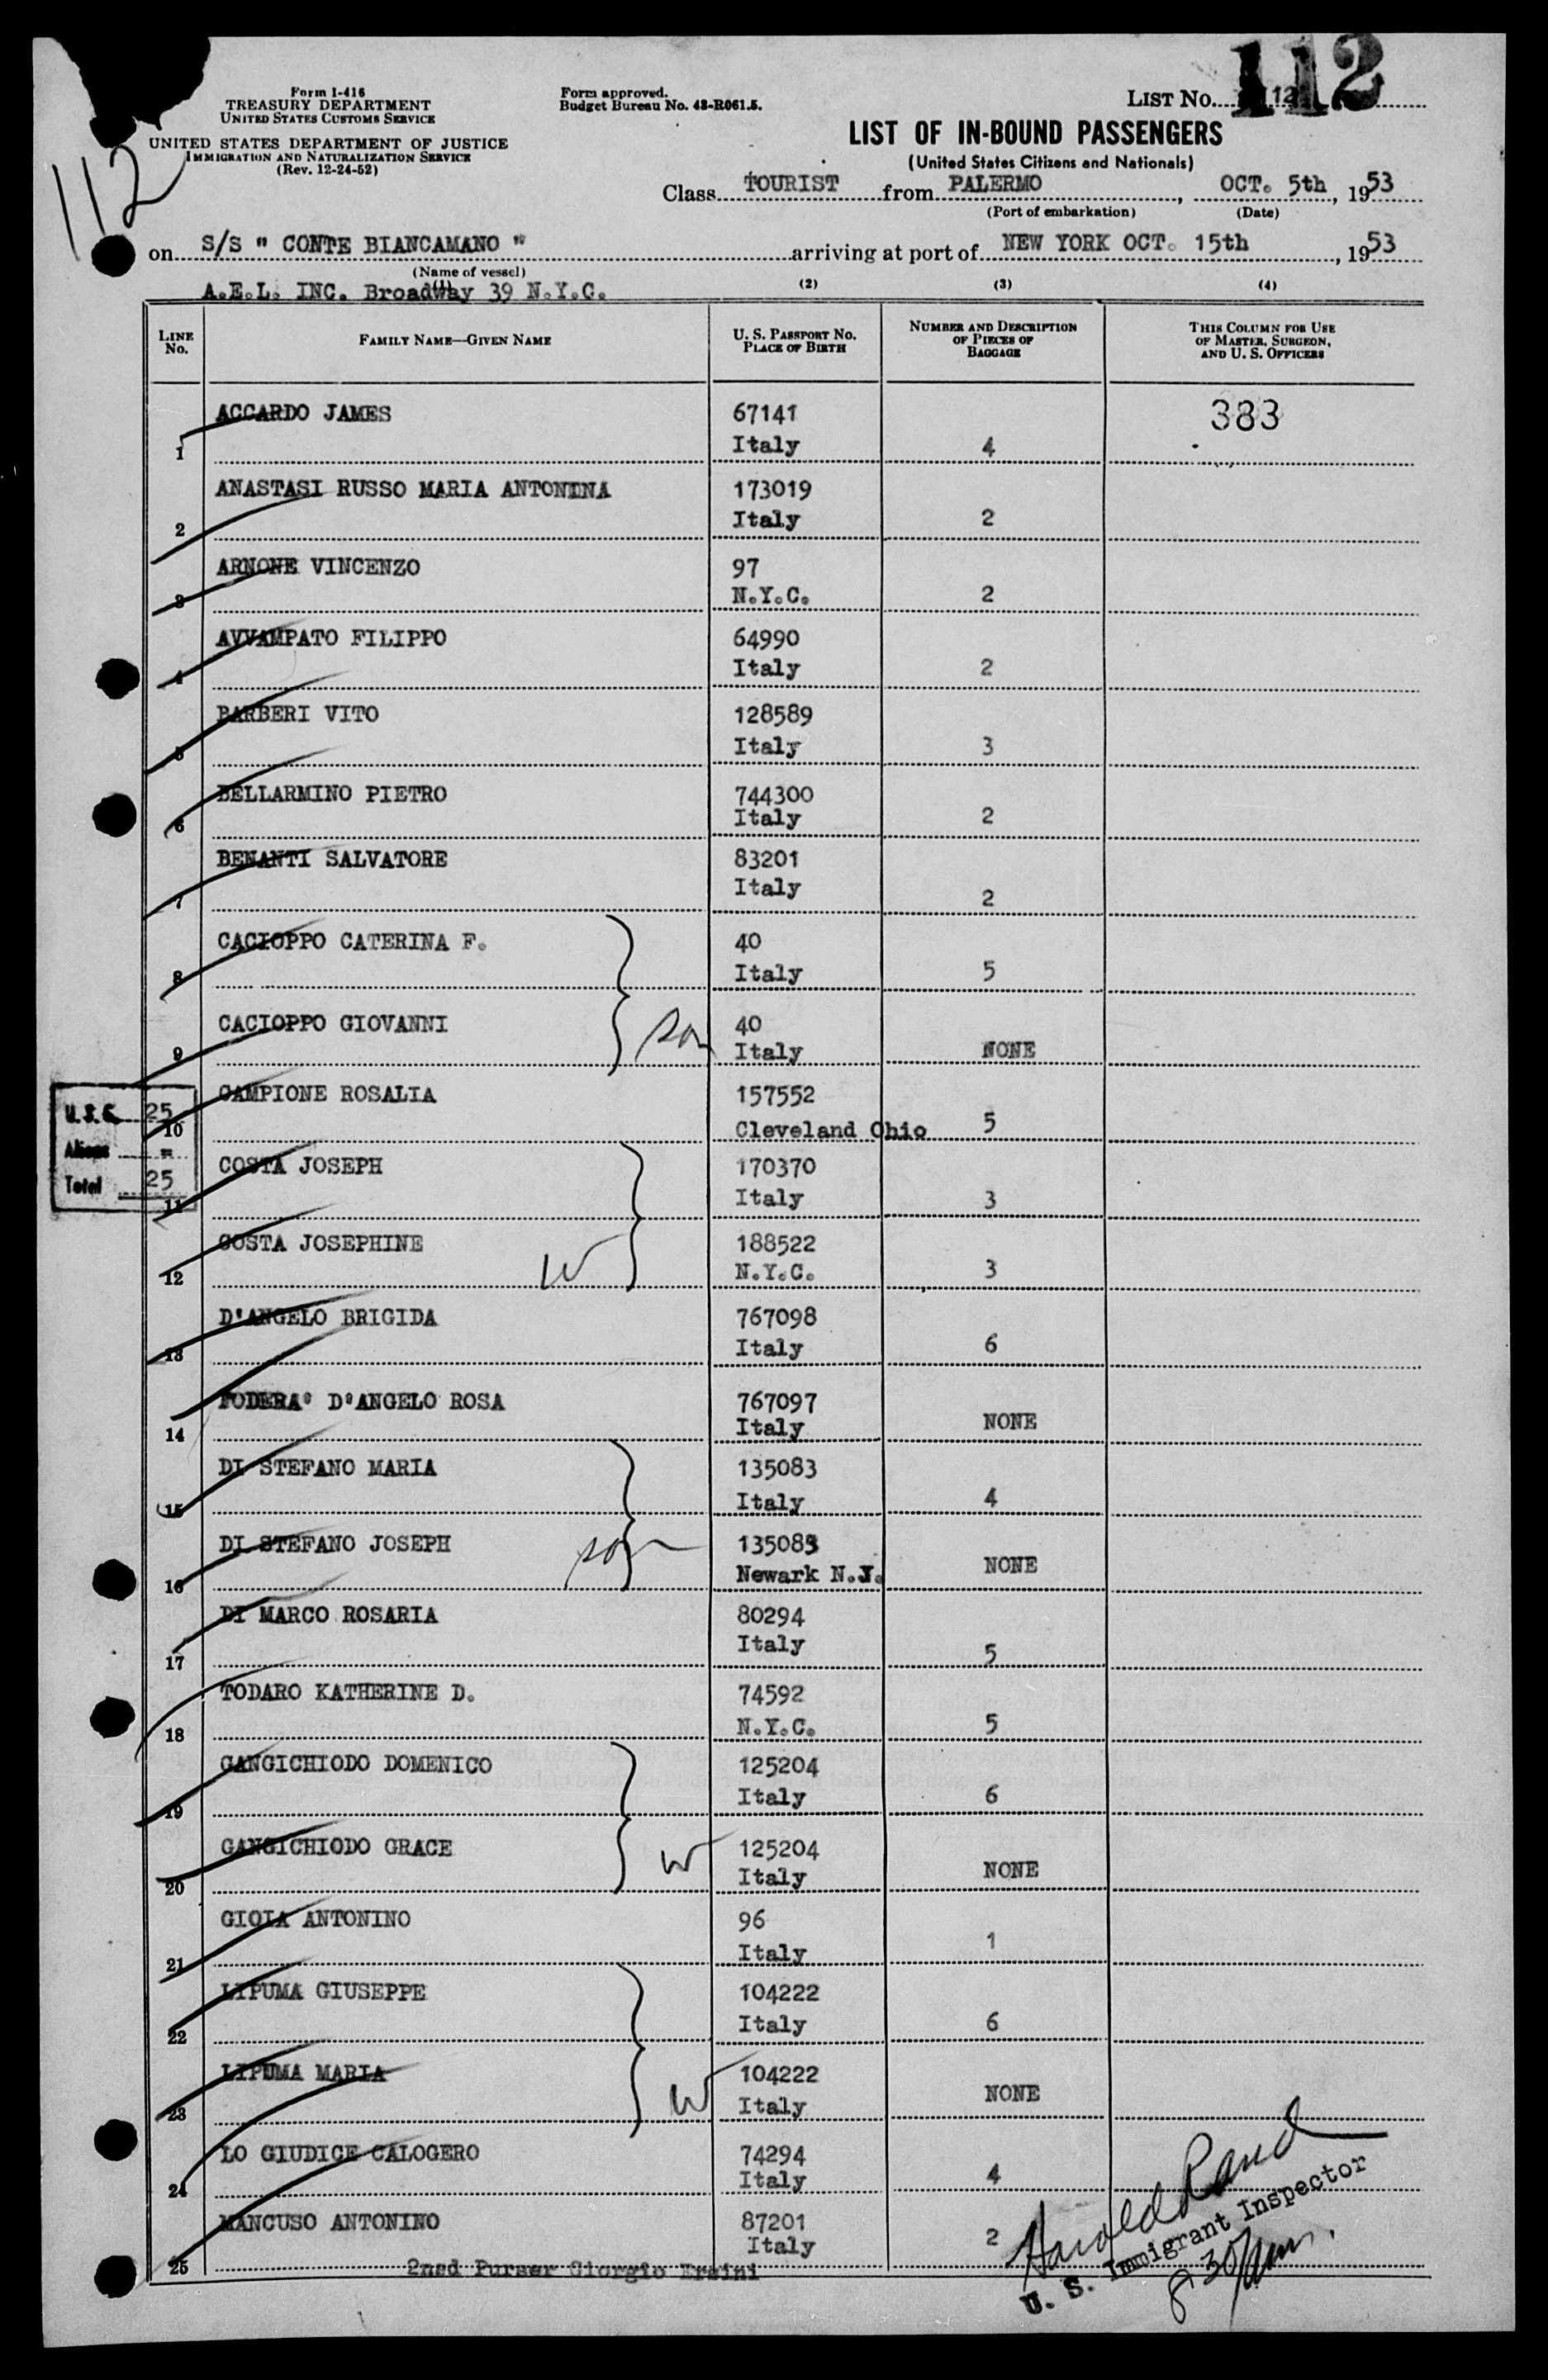 112
Form I-416
TREASURY DEPARTMENT
UNITED STATES CUSTOMS SERVICE
UNITED STATES DEPARTMENT OF JUSTICE
IMMIGRATION AND NATURALIZATION SERVICE
(Rev. 12-24-52)
112
Form approved.
Budget Bureau No. 43-R061.5.
LIST NO. 112
LIST OF IN-BOUND PASSENGERS
(United States Citizens and Nationals)
Class TOURIST from PALERMO, OCT. 5th, 1953
(Port of embarkation) (Date)
on S/S " CONTE BIANCAMANO " arriving at port of NEW YORK OCT. 15th, 1953
(Name of vessel)
A.E.L. INC. Broadway 39 N.Y.C.
(1) (2) (3) (4)
LINE NO. FAMILY NAME—GIVEN NAME U. S. PASSPORT NO. PLACE OF BIRTH NUMBER AND DESCRIPTION OF PIECES OF BAGGAGE THIS COLUMN FOR USE OF MASTER, SURGEON, AND U. S. OFFICERS
ACCARDO JAMES 67141 383
1 Italy 4
ANASTASI RUSSO MARIA ANTONINA 173019
2 Italy 2
ARNONE VINCENZO 97
3 N.Y.C. 2
AVVAMPATO FILIPPO 64990
4 Italy 2
BARBERI VITO 128589
5 Italy 3
BELLARMINO PIETRO 744300
6 Italy 2
BENANTI SALVATORE 83201
7 Italy 2
CACIOPPO CATERINA F. 40
8 Italy 5
CACIOPPO GIOVANNI 40
9 son Italy NONE
CAMPIONE ROSALIA 157552
10 Cleveland Ohio 5
U.S.C. 25
Aliens =
Total 25
COSTA JOSEPH 170370
11 Italy 3
COSTA JOSEPHINE 188522
12 W N.Y.C. 3
D'ANGELO BRIGIDA 767098
13 Italy 6
FODERA' D'ANGELO ROSA 767097
14 Italy NONE
DI STEFANO MARIA 135083
15 Italy 4
DI STEFANO JOSEPH 135083
16 son Newark N.J. NONE
DI MARCO ROSARIA 80294
17 Italy 5
TODARO KATHERINE D. 74592
18 N.Y.C. 5
GANGICHIODO DOMENICO 125204
19 Italy 6
GANGICHIODO GRACE 125204
20 W Italy NONE
GIOIA ANTONINO 96
21 Italy 1
LIPUMA GIUSEPPE 104222
22 Italy 6
LIPUMA MARIA 104222
23 W Italy NONE
LO GIUDICE CALOGERO 74294
24 Italy 4
MANCUSO ANTONINO 87201
25 Italy 2
2nd Purser Giorgio Ersini
Harold Rand
U. S. Immigrant Inspector
8 30 pm.